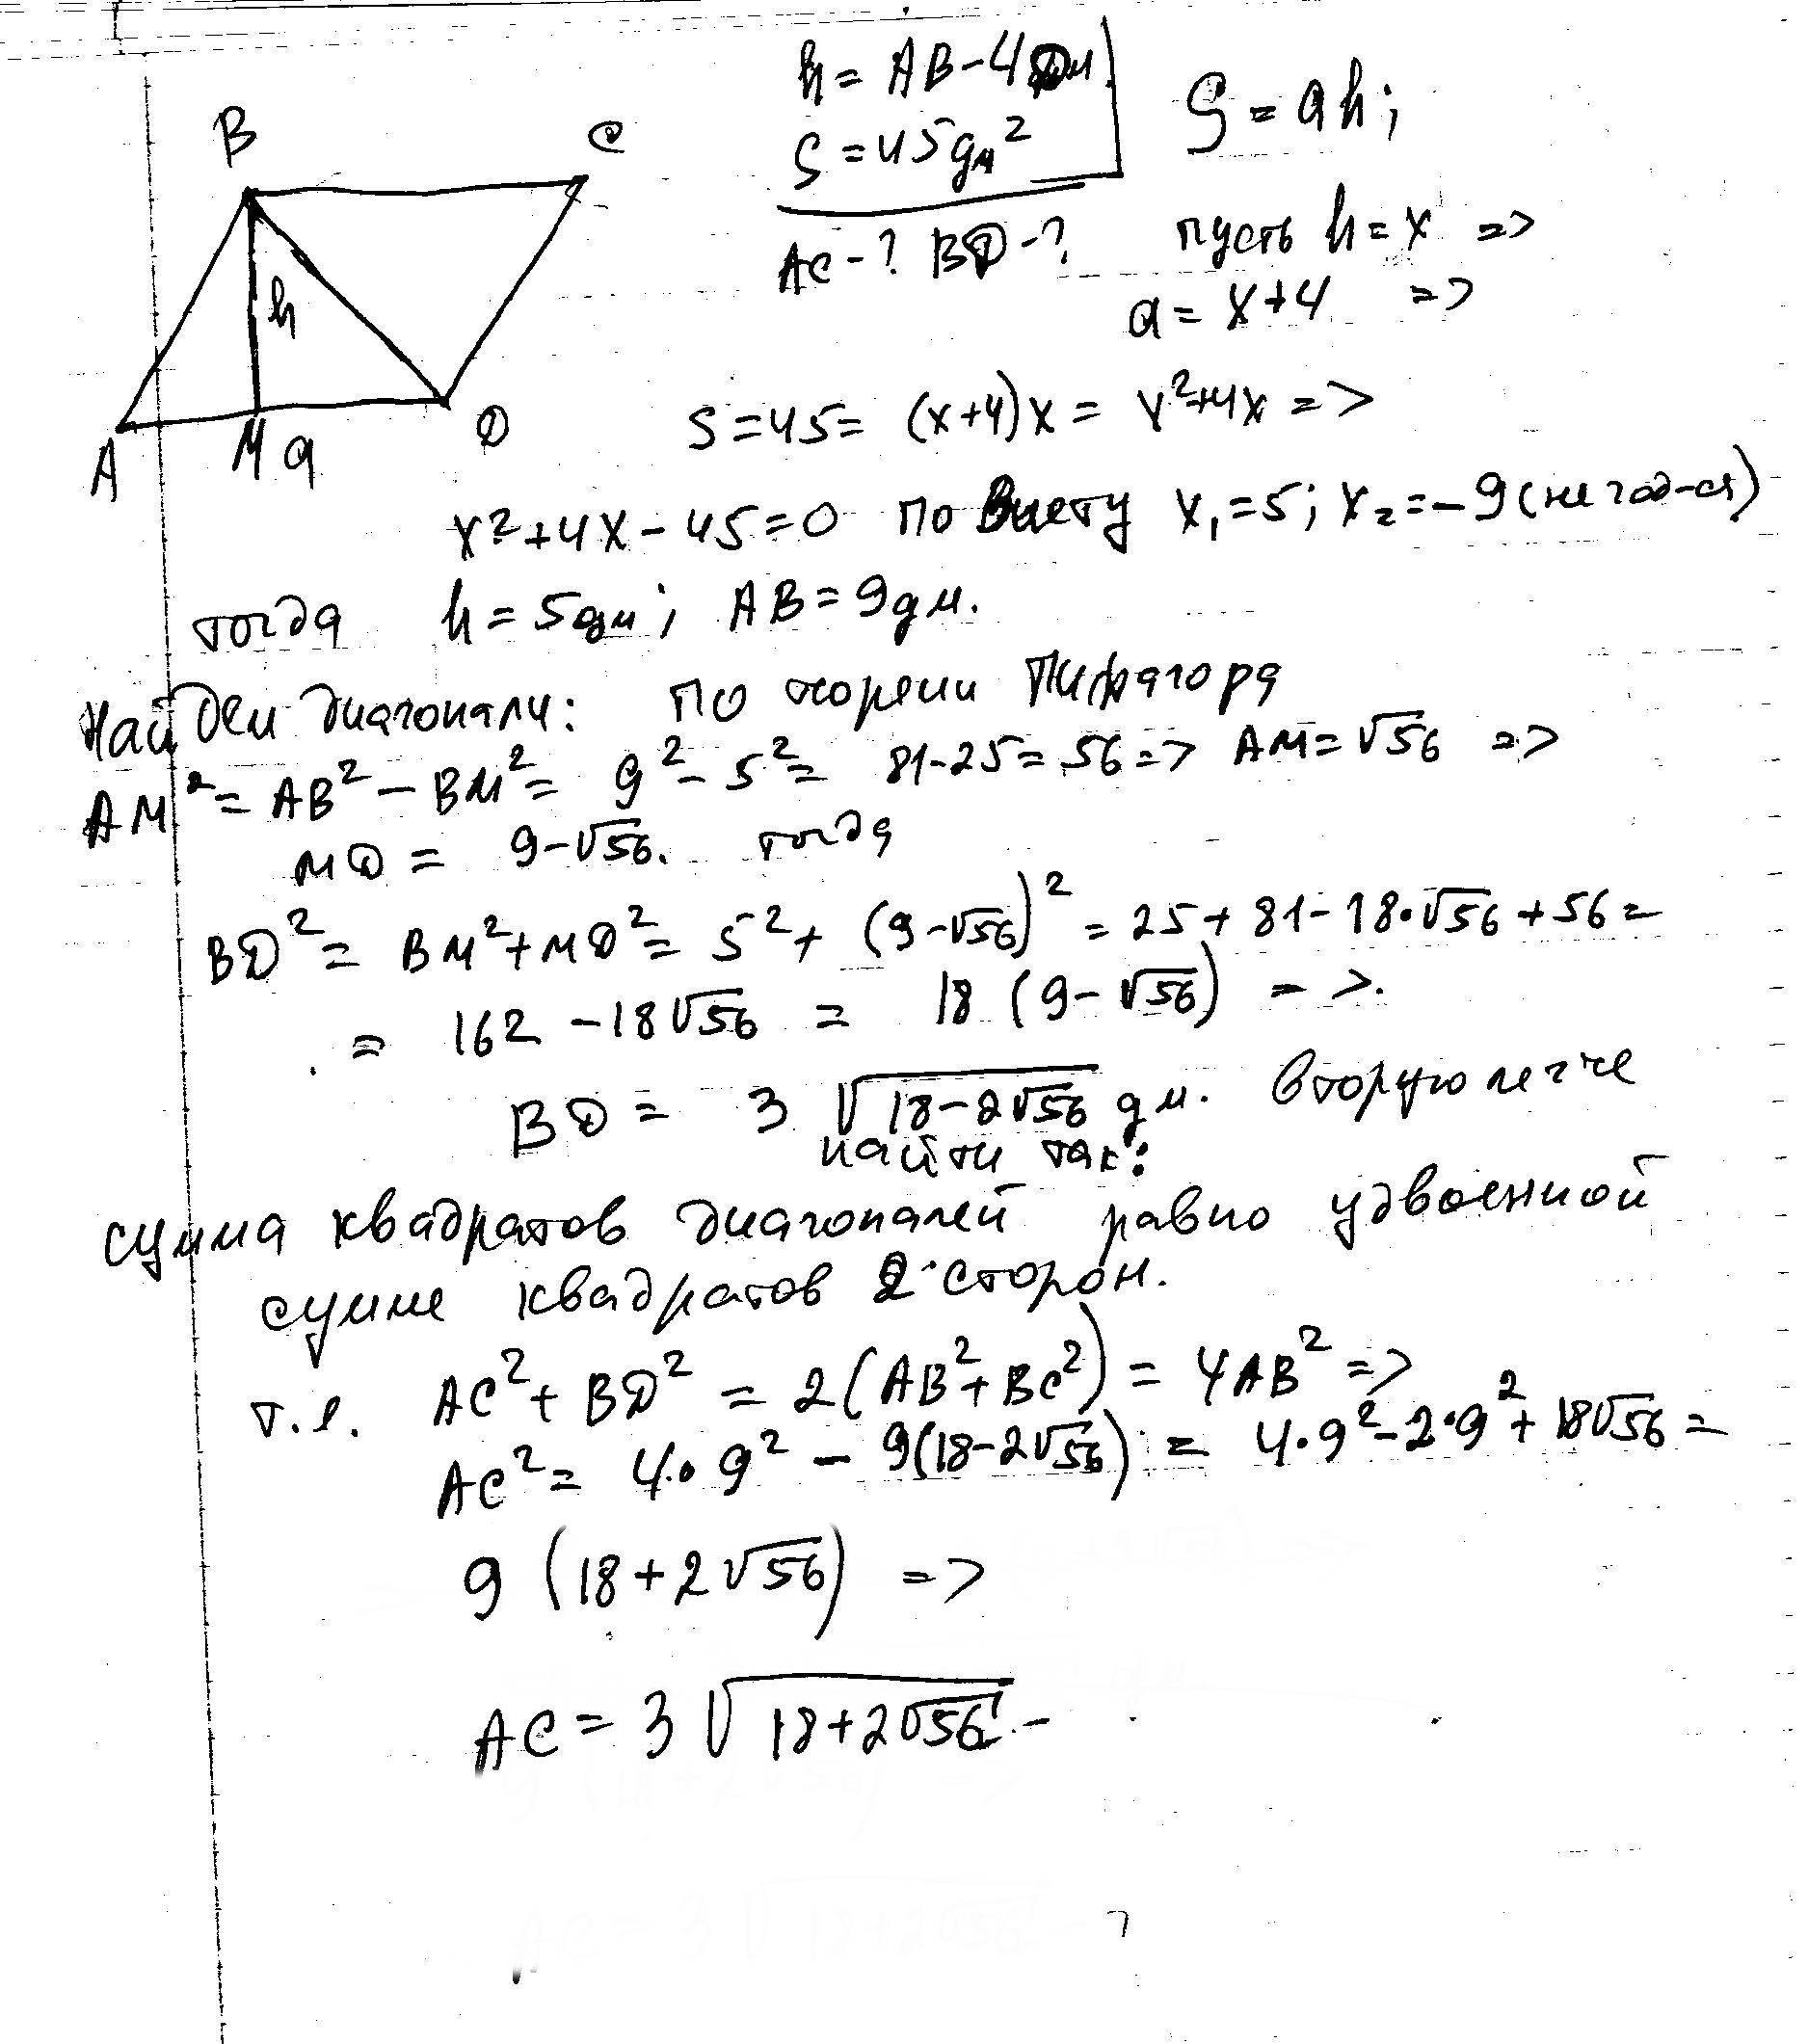 B
C
h
A
M
a
D
h = AB - 4 дм.
S = 45 дм²
AC - ? BD - ?
S = ah;
пусть h = x =>
a = x+4 =>
S = 45 = (x+4)x = x²+4x =>
x²+4x - 45 = 0 по Виету x₁ = 5; x₂ = -9 (не год-ся)
тогда h = 5 дм; AB = 9 дм.
Найдем диагонали: по теореми Пифагора
AM² = AB² - BM² = 9² - 5² = 81-25 = 56 => AM = √56 =>
MD = 9-√56. тогда
BD² = BM²+MD² = 5² + (9-√56)² = 25 + 81 - 18·√56 + 56 =
= 162 - 18√56 = 18 (9-√56) =>.
BD = 3 √(18-2√56) дм. вторую легче
найти так:
сумма квадратов диагоналей равно удвоенной
сумме квадратов 2 сторон.
т.е. AC² + BD² = 2(AB²+BC²) = 4AB² =>
AC² = 4·9² - 9(18-2√56) = 4·9²-2·9² + 18√56 =
9 (18+2√56) =>
AC = 3 √(18+2√56) -